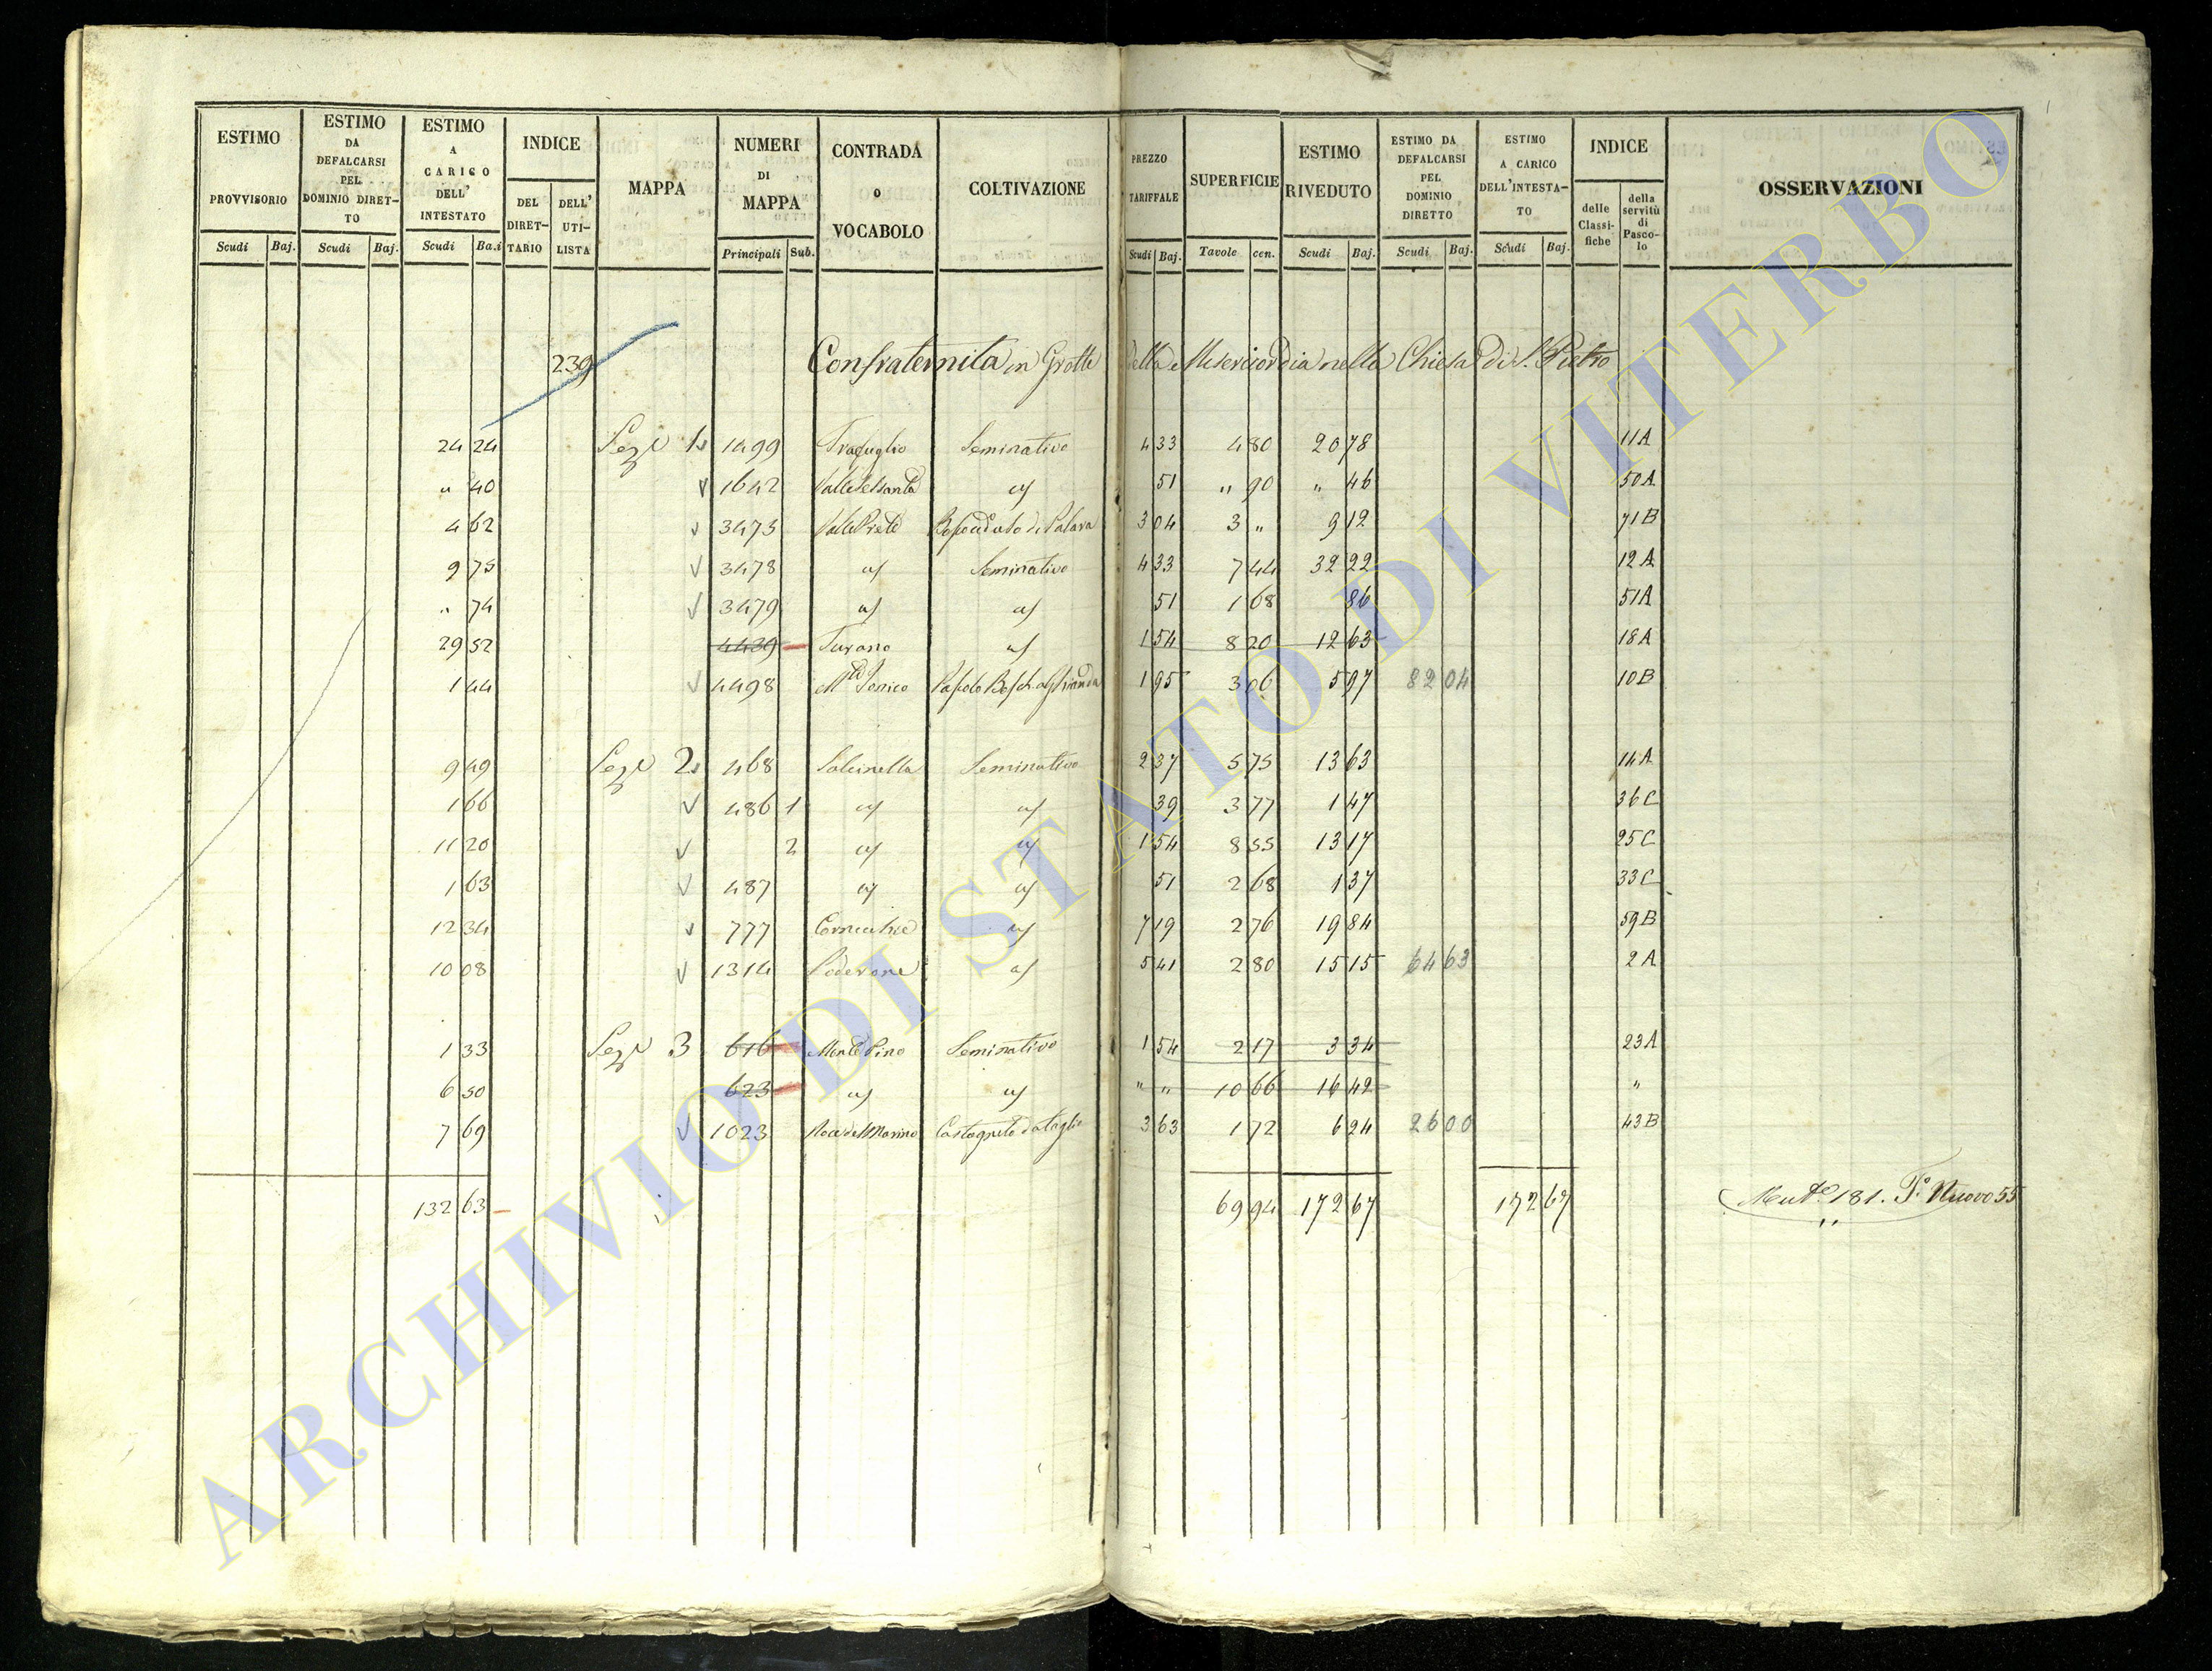 ESTIMO PROVVISORIO Scudi Baj.
ESTIMO DA DEFALCARSI PEL DOMINIO DIRET-TO Scudi Baj.
ESTIMO A CARICO DELL' INTESTATO Scudi Ba.i
INDICE DEL DIRET-TARIO DELL' UTI-LISTA
MAPPA
NUMERI DI MAPPA Principali Sub.
CONTRADA o VOCABOLO
COLTIVAZIONE
PREZZO TARIFFALE Scudi Baj.
SUPERFICIE Tavole cen.
ESTIMO RIVEDUTO Scudi Baj.
ESTIMO DA DEFALCARSI PEL DOMINIO DIRETTO Scudi Baj.
ESTIMO A CARICO DELL'INTESTA-TO Scudi Baj.
INDICE delle Classi-fiche della servitù di Pasco-lo
OSSERVAZIONI
239 Confraternita in Grotte della Misericordia nella Chiesa di S. Pietro
24 24 Sez.e 1a 1499 Seminativo 4 33 4 80 20 78 11A
" 40 1642 51 " 90 " 46 50A
4 62 3473 Valle Prete 3 04 3 " 9 12 71B
9 75 3478 Seminativo 4 33 7 44 32 22 12A
" 74 3479 51 1 68 86 51A
29 52 4439 Turano 1 54 8 20 12 63 18A
1 44 4498 1 95 3 06 5 97 82 04 10B
9 49 Sez.e 2a 468 Salcinella Seminativo 2 37 5 75 13 63 14A
1 66 486 1 39 3 77 1 47 36C
11 20 2 1 54 8 55 13 17 25C
1 63 487 51 2 68 1 37 33C
12 34 777 Cornicchie 7 19 2 76 19 84 59B
10 08 1314 Poderone 5 41 2 80 15 15 64 63 2A
1 33 Sez.e 3 616 Monte Pino Seminativo 1 54 2 17 3 34 23A
6 50 623 " " 10 66 16 42 "
7 69 1023 Castagneto da taglio 3 63 1 72 6 24 26 00 43B
132 63 69 94 172 67 172 67 181. F.o Nuovo 55
ARCHIVIO DI STATO DI VITERBO